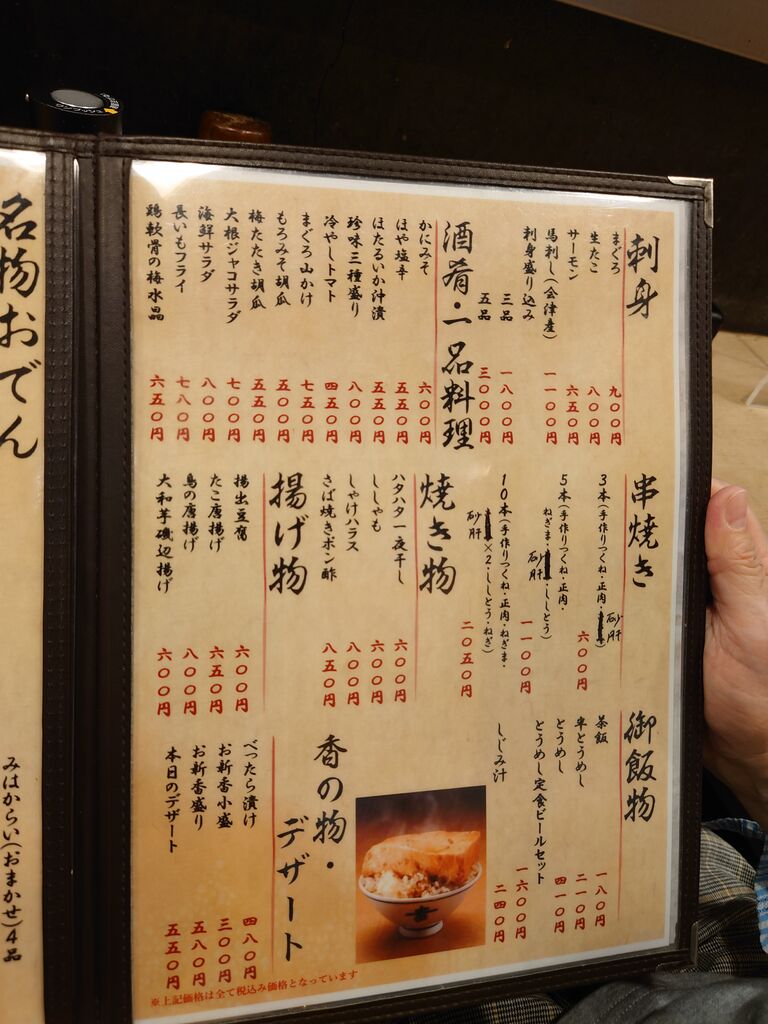 刺身
まぐろ 九〇〇円
生たこ 八〇〇円
サーモン 六五〇円
馬刺し(会津産) 一一〇〇円
刺身盛り込み 三品 一八〇〇円
五品 三〇〇〇円
酒肴・一品料理
かにみそ 六〇〇円
ほや塩辛 五五〇円
ほたるいか沖漬 五五〇円
珍味三種盛り 八〇〇円
冷やしトマト 四五〇円
まぐろ山かけ 七五〇円
もろみそ胡瓜 五〇〇円
梅たたき胡瓜 五五〇円
大根ジャコサラダ 七〇〇円
海鮮サラダ 八〇〇円
長いもフライ 七八〇円
鶏軟骨の梅水晶 六五〇円
串焼き
3本(手作りつくね・正肉・砂肝) 六〇〇円
5本(手作りつくね・正肉・
ねぎま・砂肝・ししとう) 一一〇〇円
10本(手作りつくね・正肉・ねぎま・
砂肝×2・ししとう・ねぎ) 二〇五〇円
焼き物
ハタハタ一夜干し 六〇〇円
ししゃも 六〇〇円
しゃけハラス 八〇〇円
さば焼きポン酢 八五〇円
揚げ物
揚出豆腐 六〇〇円
たこ唐揚げ 六五〇円
鳥の唐揚げ 八〇〇円
大和芋磯辺揚げ 六〇〇円
御飯物
茶飯 一八〇円
半とうめし 二一〇円
とうめし 四一〇円
とうめし定食ビールセット 一六〇〇円
しじみ汁 二四〇円
香の物・
デザート
べったら漬け 四八〇円
お新香小盛 三〇〇円
お新香盛り 五八〇円
本日のデザート 五五〇円
※上記価格は全て税込み価格となっています
名物おでん
みはからい(おまかせ)4品